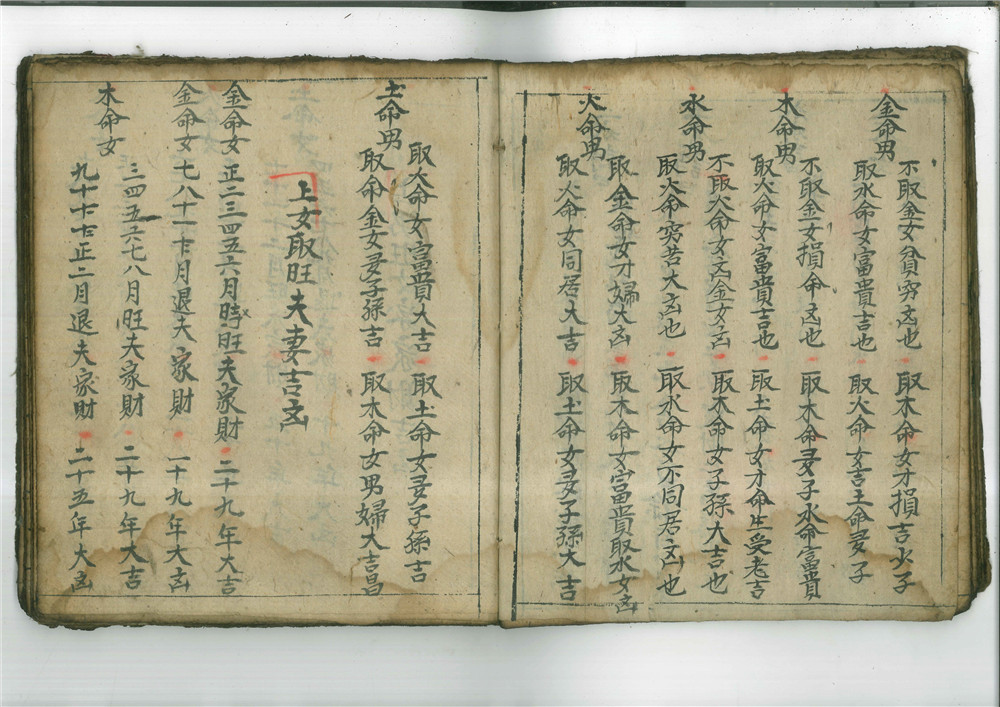 金命男
不取金女貧穷凶也 取木命女才損吉火子
取水命女富貴吉也 取火命女吉土命多子
木命男
不取金女損命凶也 取木命多子水命富貴
取火命女富貴吉也 取土命女才命生受老吉
水命男
不取火命女凶金女凶 取木命女子孫大吉也
取火命穷苦大凶也 取水命女不同居凶也
火命男
取金命女才婦大凶 取木命女富貴取水女凶
取火命女同居大吉 取土命女多子孫大吉
土命男
取火命女富貴大吉 取土命女多子孫吉
取命金女多子孫吉 取木命女男婦大吉昌
上女取旺夫妻吉凶
金命女 正二三四五六月時旺夫家財 二十九年大吉
金命女 七八十一十月退夫家財 一十九年大凶
木命女
三四五六七八月旺夫家財 二十九年大吉
九十十十正二月退夫家財 二十五年大凶